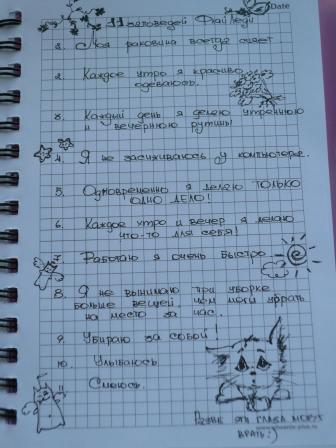 Date
11 заповедей Флай Леди
1. Моя раковина всегда сияет
2. Каждое утро я красиво
одеваюсь.
3. Каждый день я делаю утреннюю
и вечернюю рутины!
4. Я не засиживаюсь у компьютера.
5. Одновременно я делаю ТОЛЬКО
ОДНО ДЕЛО!
6. Каждое утро и вечер я делаю
что-то для себя!
Работаю я очень быстро
8. Я не вынимаю при уборке
больше вещей, чем могу убрать
на место за час.
9. Убираю за собой!
10. Улыбаюсь
11. Смеюсь.
эти глаза могут
врать:)